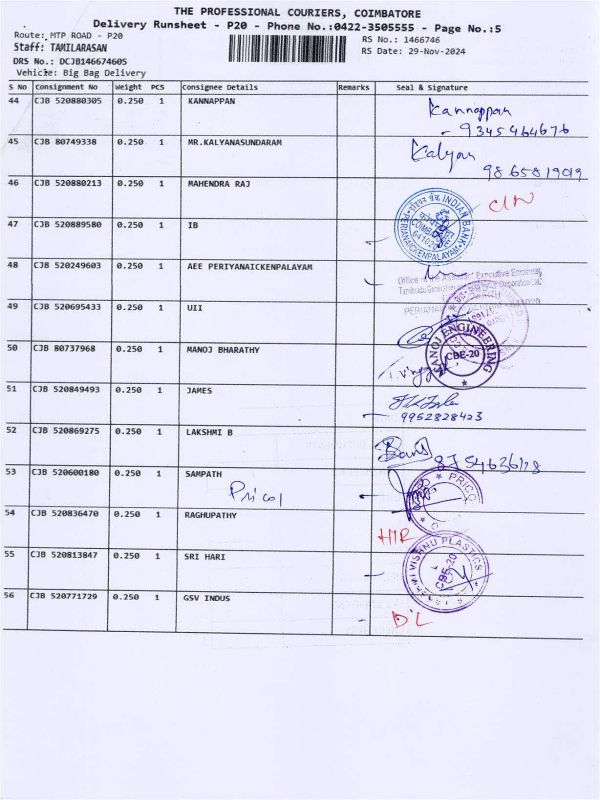 THE PROFESSIONAL COURIERS, COIMBATORE
Delivery Runsheet - P20 - Phone No.:0422-3505555 - Page No.:5
Route: MTP ROAD - P20
RS No.: 1466746
Staff: TAMILARASAN
RS Date: 29-Nov-2024
DRS No.: DCJB146674605
Vehicle: Big Bag Delivery
S No Consignment No Weight PCS Consignee Details Remarks Seal & Signature
44 CJB 520880305 0.250 1 KANNAPPAN Kannappan
9345464676
45 CJB 80749338 0.250 1 MR.KALYANASUNDARAM Kalyan
9865819019
46 CJB 520880213 0.250 1 MAHENDRA RAJ
47 CJB 520889580 0.250 1 IB
INDIAN BANK
PERIANAICKENPALAYAM
48 CJB 520249603 0.250 1 AEE PERIYANAICKENPALAYAM
Office of the Assistant Executive Engineer
49 CJB 520695433 0.250 1 UII
50 CJB 80737968 0.250 1 MANOJ BHARATHY
MANOJ ENGINEERING
CBE-20
51 CJB 520849493 0.250 1 JAMES
9952828423
52 CJB 520869275 0.250 1 LAKSHMI B
53 CJB 520600180 0.250 1 SAMPATH
Pricol
PRICO
54 CJB 520836470 0.250 1 RAGHUPATHY
55 CJB 520813847 0.250 1 SRI HARI
VISHNU PLASTICS
CBE-20
56 CJB 520771729 0.250 1 GSV INDUS
D'L